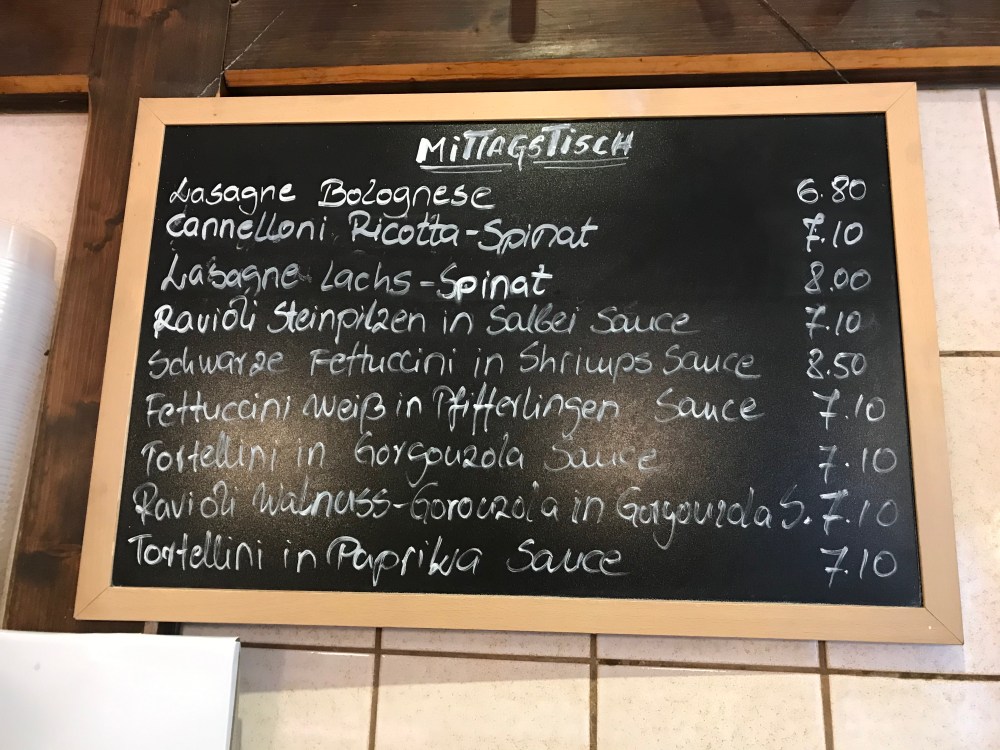 MITTAGSTISCH
Lasagne Bolognese 6.80
Cannelloni Ricotta-Spinat 7.10
Lasagne Lachs-Spinat 8.00
Ravioli Steinpilzen in Salbei Sauce 7.10
Schwarze Fettuccini in Shrimps Sauce 8.50
Fettuccini Weiß in Pfifferlingen Sauce 7.10
Tortellini in Gorgonzola Sauce 7.10
Ravioli Walnuss-Goronzola in Gorgonzola S. 7.10
Tortellini in Paprika Sauce 7.10